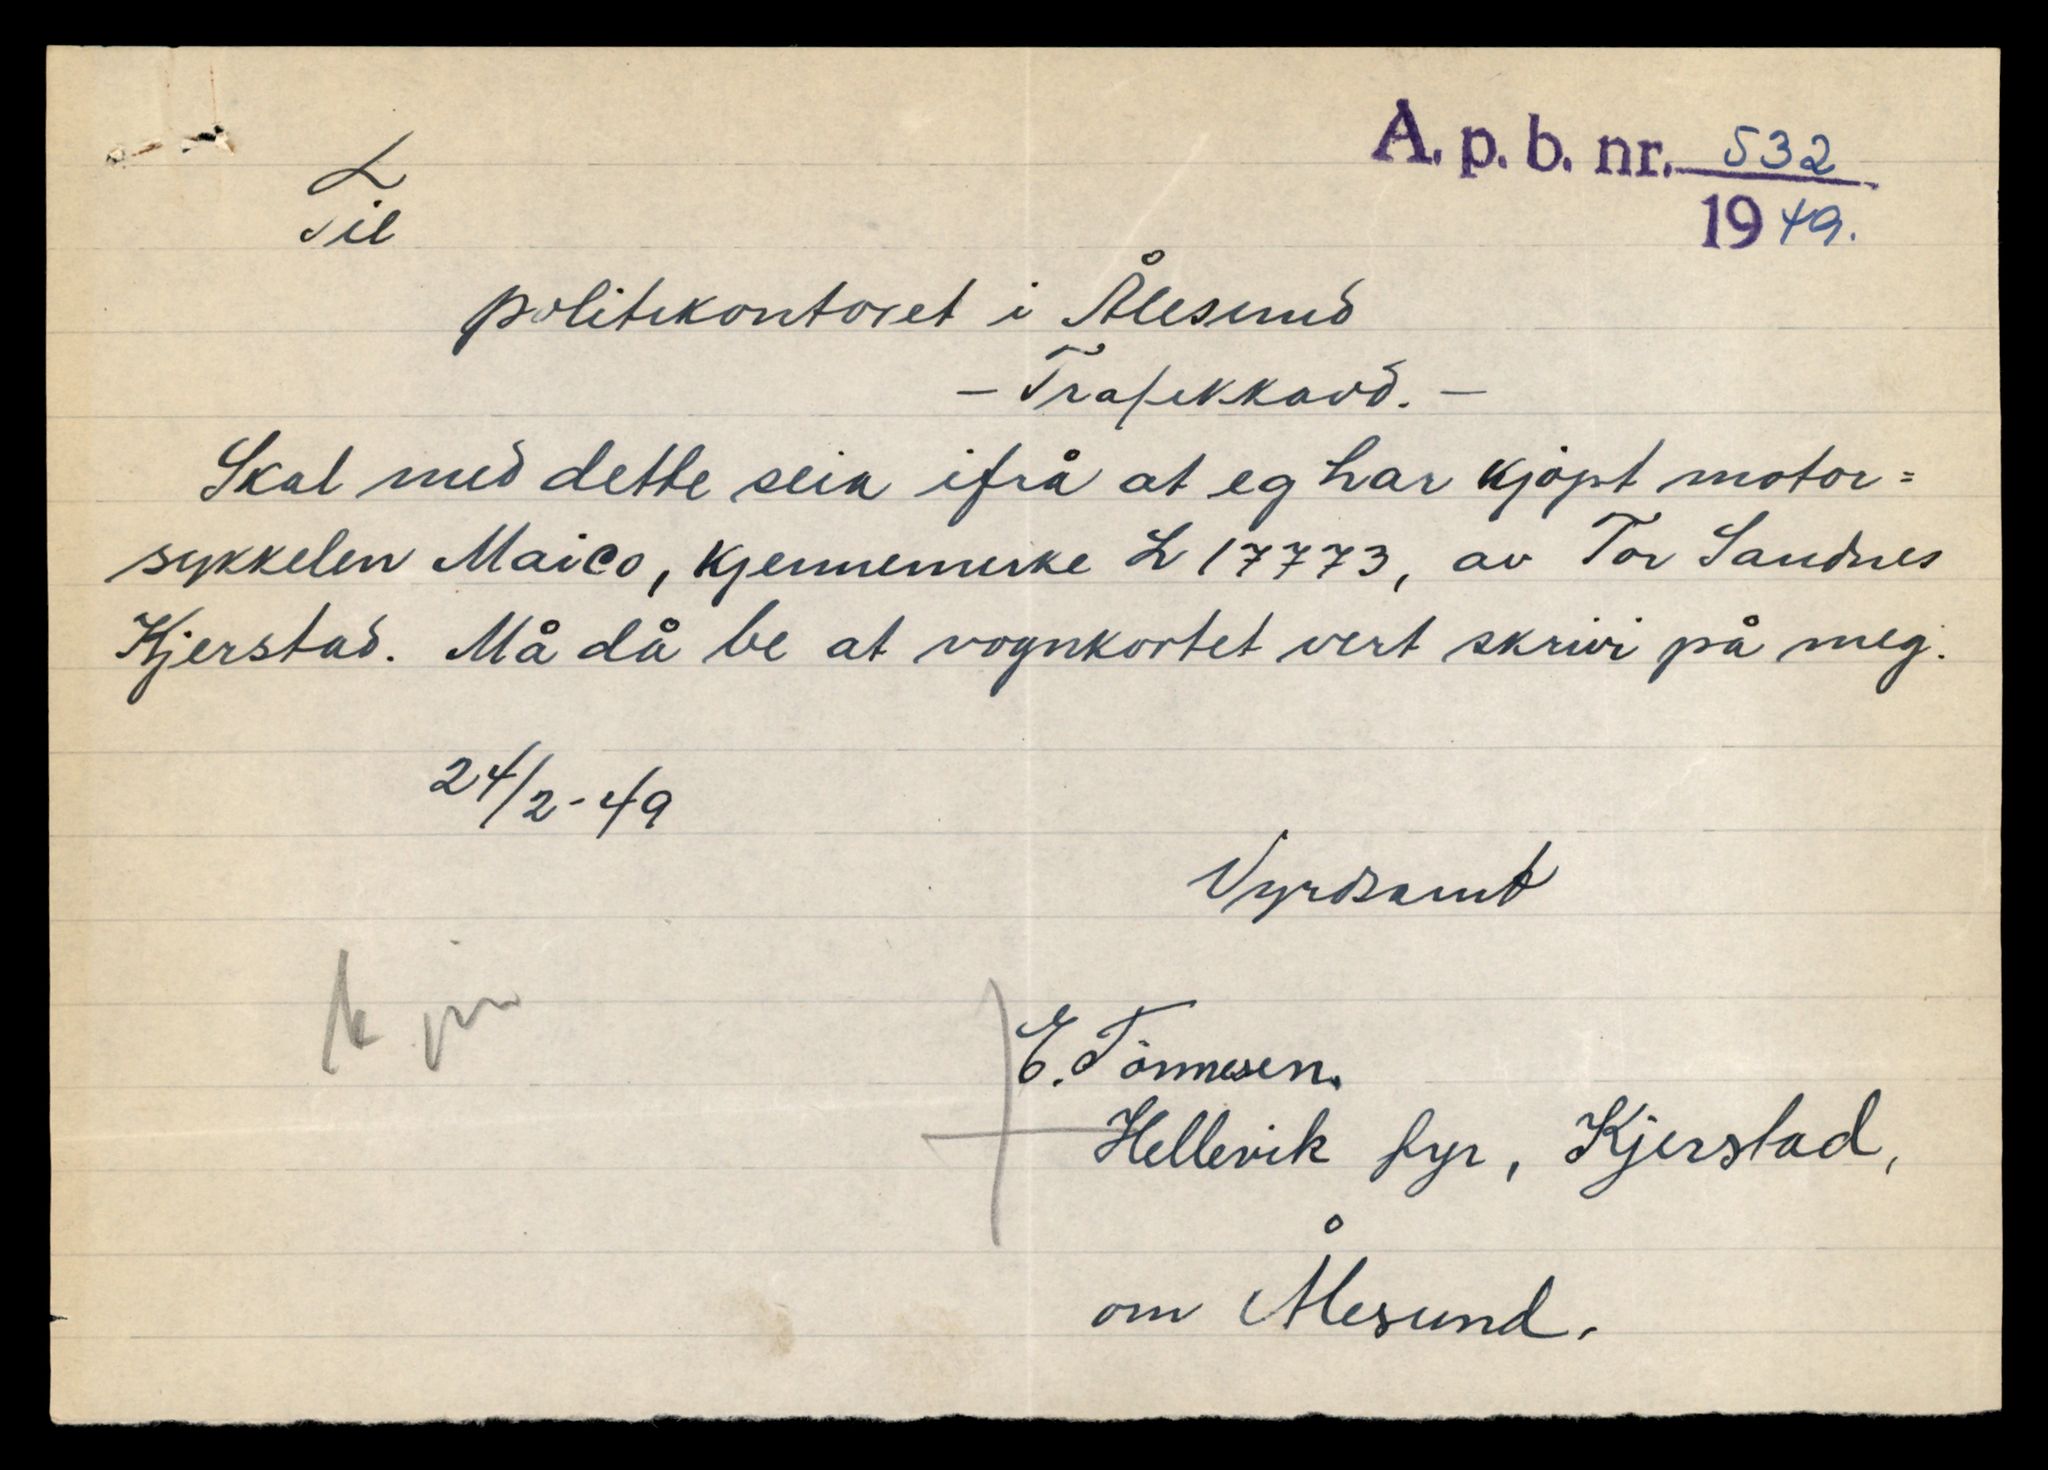 A. p. b. nr. 532
1949.
Til
politikontoret i Ålesund
- Trafikkavd. -
Skal med dette seia ifrå at eg har kjöpt motor=
sykkelen Maico, kjennemerke L 17773, av Tor Sandnes
Kjerstad. Må då be at vognkortet vert skrivi på meg.
24/2-49
Vyrdsamt
E. Tönnesen.
Hellevik fyr, Kjerstad,
om Ålesund.